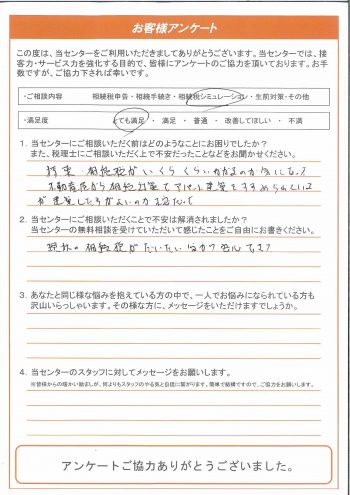 お客様アンケート
この度は、当センターをご利用いただきましてありがとうございます。当センターでは、接
客力・サービス力を強化する目的で、皆様にアンケートのご協力を頂いております。お手
数ですが、ご協力下されば幸いです。
・ご相談内容 相続税申告・相続手続き・相続税シミュレーション・生前対策・その他
・満足度 とても満足 ・ 満足 ・ 普通 ・ 改善してほしい ・ 不満
1．当センターにご相談いただく前はどのようなことにお困りでしたか？
また、税理士にご相談いただく上で不安だったことなどをお聞かせください。
将来、相続税がいくらくらいかかるのか
不動産屋から相続対策でアパート建築をすすめられ
が建築した方がよいのか
2．当センターにご相談いただくことで不安は解消されましたか？
当センターの無料相談を受けていただいて感じたことをご自由にお書きください。
現状の相続税がだいたい分かりました。
3．あなたと同じ様な悩みを抱えている方の中で、一人でお悩みになられている方も
沢山いらっしゃいます。その様な方に、メッセージをいただけますでしょうか。
4．当センターのスタッフに対してメッセージをお願いします。
※皆様からの暖かい励ましが、何よりもスタッフのやる気と自信に繋がります。簡単で結構ですので、ご協力をお願いします。
アンケートご協力ありがとうございました。